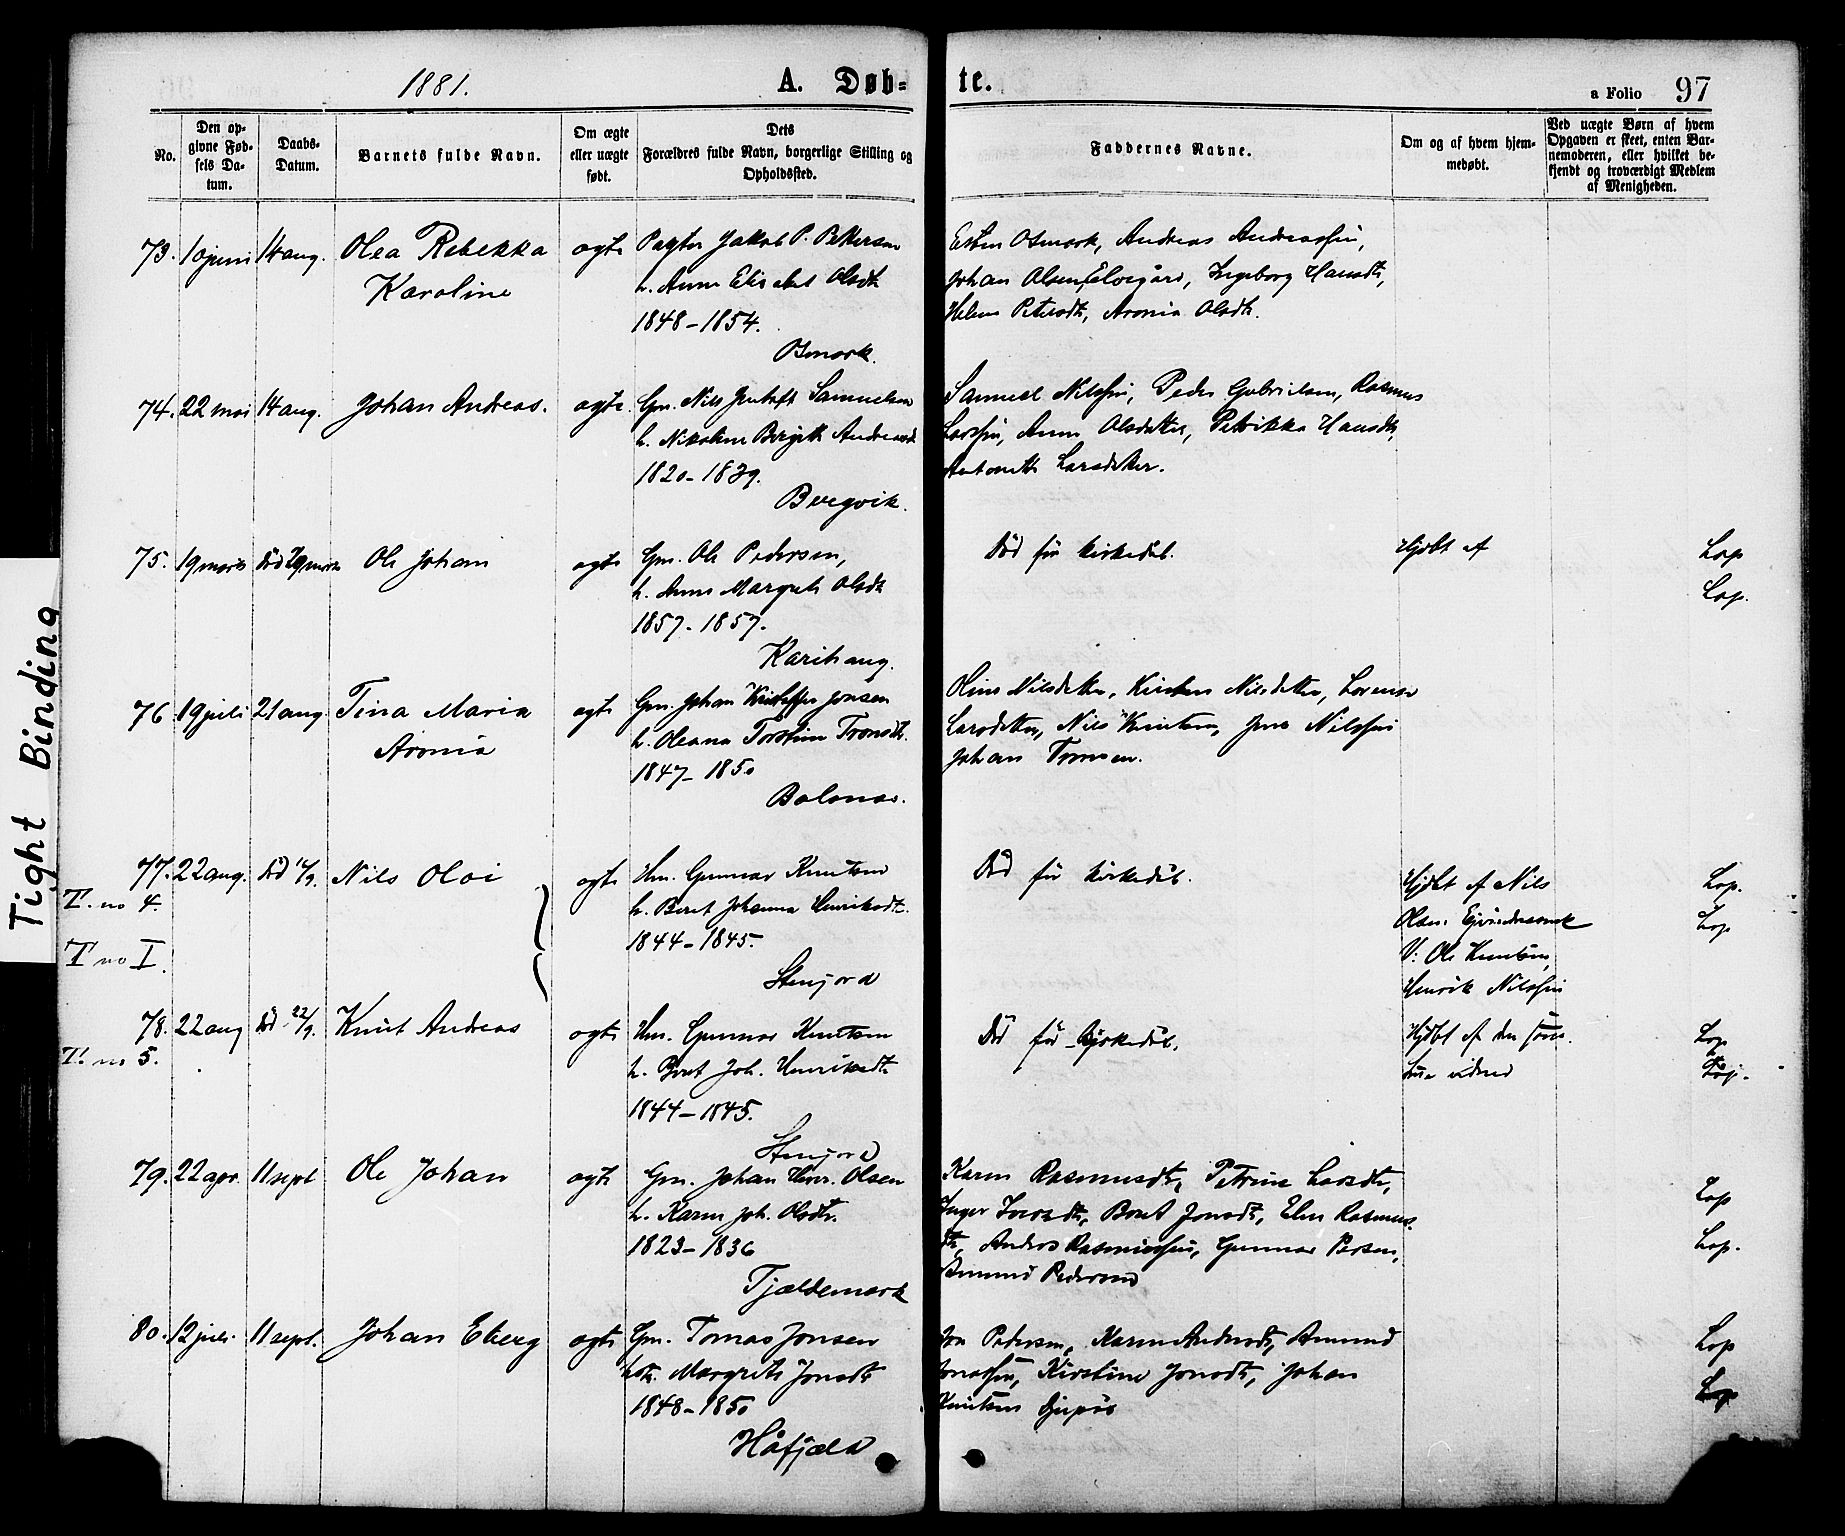 1881.
A. Døb-
te.
a Folio 97
No.
Den op-
givne Fød-
sels Da-
tum.
Daabs-
Datum.
Barnets fulde Navn.
Om ægte
eller uægte
født.
Dets
Forældres fulde Navn, borgerlige Stilling og
Opholdssted.
Faddernes Navne.
Om og af hvem hjem-
medøbt.
Ved uægte Børn af hvem
Opgaven er skeet, enten Bar-
nemoderen, eller hvilket be-
kjendt og troværdigt Medlem
af Menigheden.
73. 10 juni 14 aug. Olea Rebekka
Karoline
ægte Pagter Jakob P. Pettersen
h. Anne Elisabet Olsdt
1848-1854.
Osmark.
Esten Osmark, Andreas Andreassen,
Johan Olsen, Elvegård, Ingeborg Hansdt,
Helene Petersdt, Aronia Olsdt.
74. 22 mai 14 aug. Johan Andreas.
ægte. Gm. Nils Samuelsen
h. Nikoline Bergitte Andreasdt
1820-1839.
Bergvik.
Samuel Nilssen, Peder Gabrielsen, Rasmus
Larssen, Anne Olsdatter, Petrikka Hansdt,
Antonette Larsdatter.
75. 19 marts død 29 marts Ole Johan
ægte Gm. Ole Pedersen,
h. Anne Margrete Olsdt
1857-1857.
Karihaug.
Död för kirkedåb.
Hjdbt af
Lop
Lop.
76. 19 juli 21 aug Tina Maria
Aronia
ægte Gm. Johan Kristoffer Jonsen
h. Oleana Torstine Tronsdt.
1847-1850
Balsnes.
Oline Nilsdatter, Kirsten Nilsdatter, Lorense
Larsdatter, Nils Knutsen, Jens Nilssen
Johan Tronsen.
77. 22 aug. död 16/9. Nils Olai
T. no 4.
T no I.
ægte Hm. Gunnar Knutsen
h. Beret Johanna Henriksdt.
1844-1845.
Stenjord
Död för kirkedåb.
Hjdbt af Nils
Olsen
V: Ole Knutsen,
Henrik Nilssen
Lop.
Lop
78. 22 aug död 22/9. Knut Andreas
T. no 5.
ægte Hm. Gunnar Knutsen
h. Beret Joh. Henriksdt.
1844-1845.
Stenjord
Död för Kirkedåb.
Hjdbt af den
Lop
Lop.
79. 22 apr. 11 sept Ole Johan
ægte Gm. Johan Olsen
h. Karen Joh. Olsdtr.
1823-1836
Tjældemark
Karen Rasmusdt, Petrine Larsdt,
Inger Larsdt, Beret Jonsdt, Elen Rasmus-
dt, Anders Rasmussen, Gunnar Persen,
Amund Pedersen
Lop
Lop.
80. 12 juli. 11 sept. Johan Eberg
ægte Gm. Tomas Jonsen
Margrete Jonsdt
1848-1850
Håfjæld
Jon Pedersen, Karen Andersdt, Amund
Jonassen, Kirstine Jonsdt, Johan
Knutsen Djupås
Lop
Lop
Tight Binding